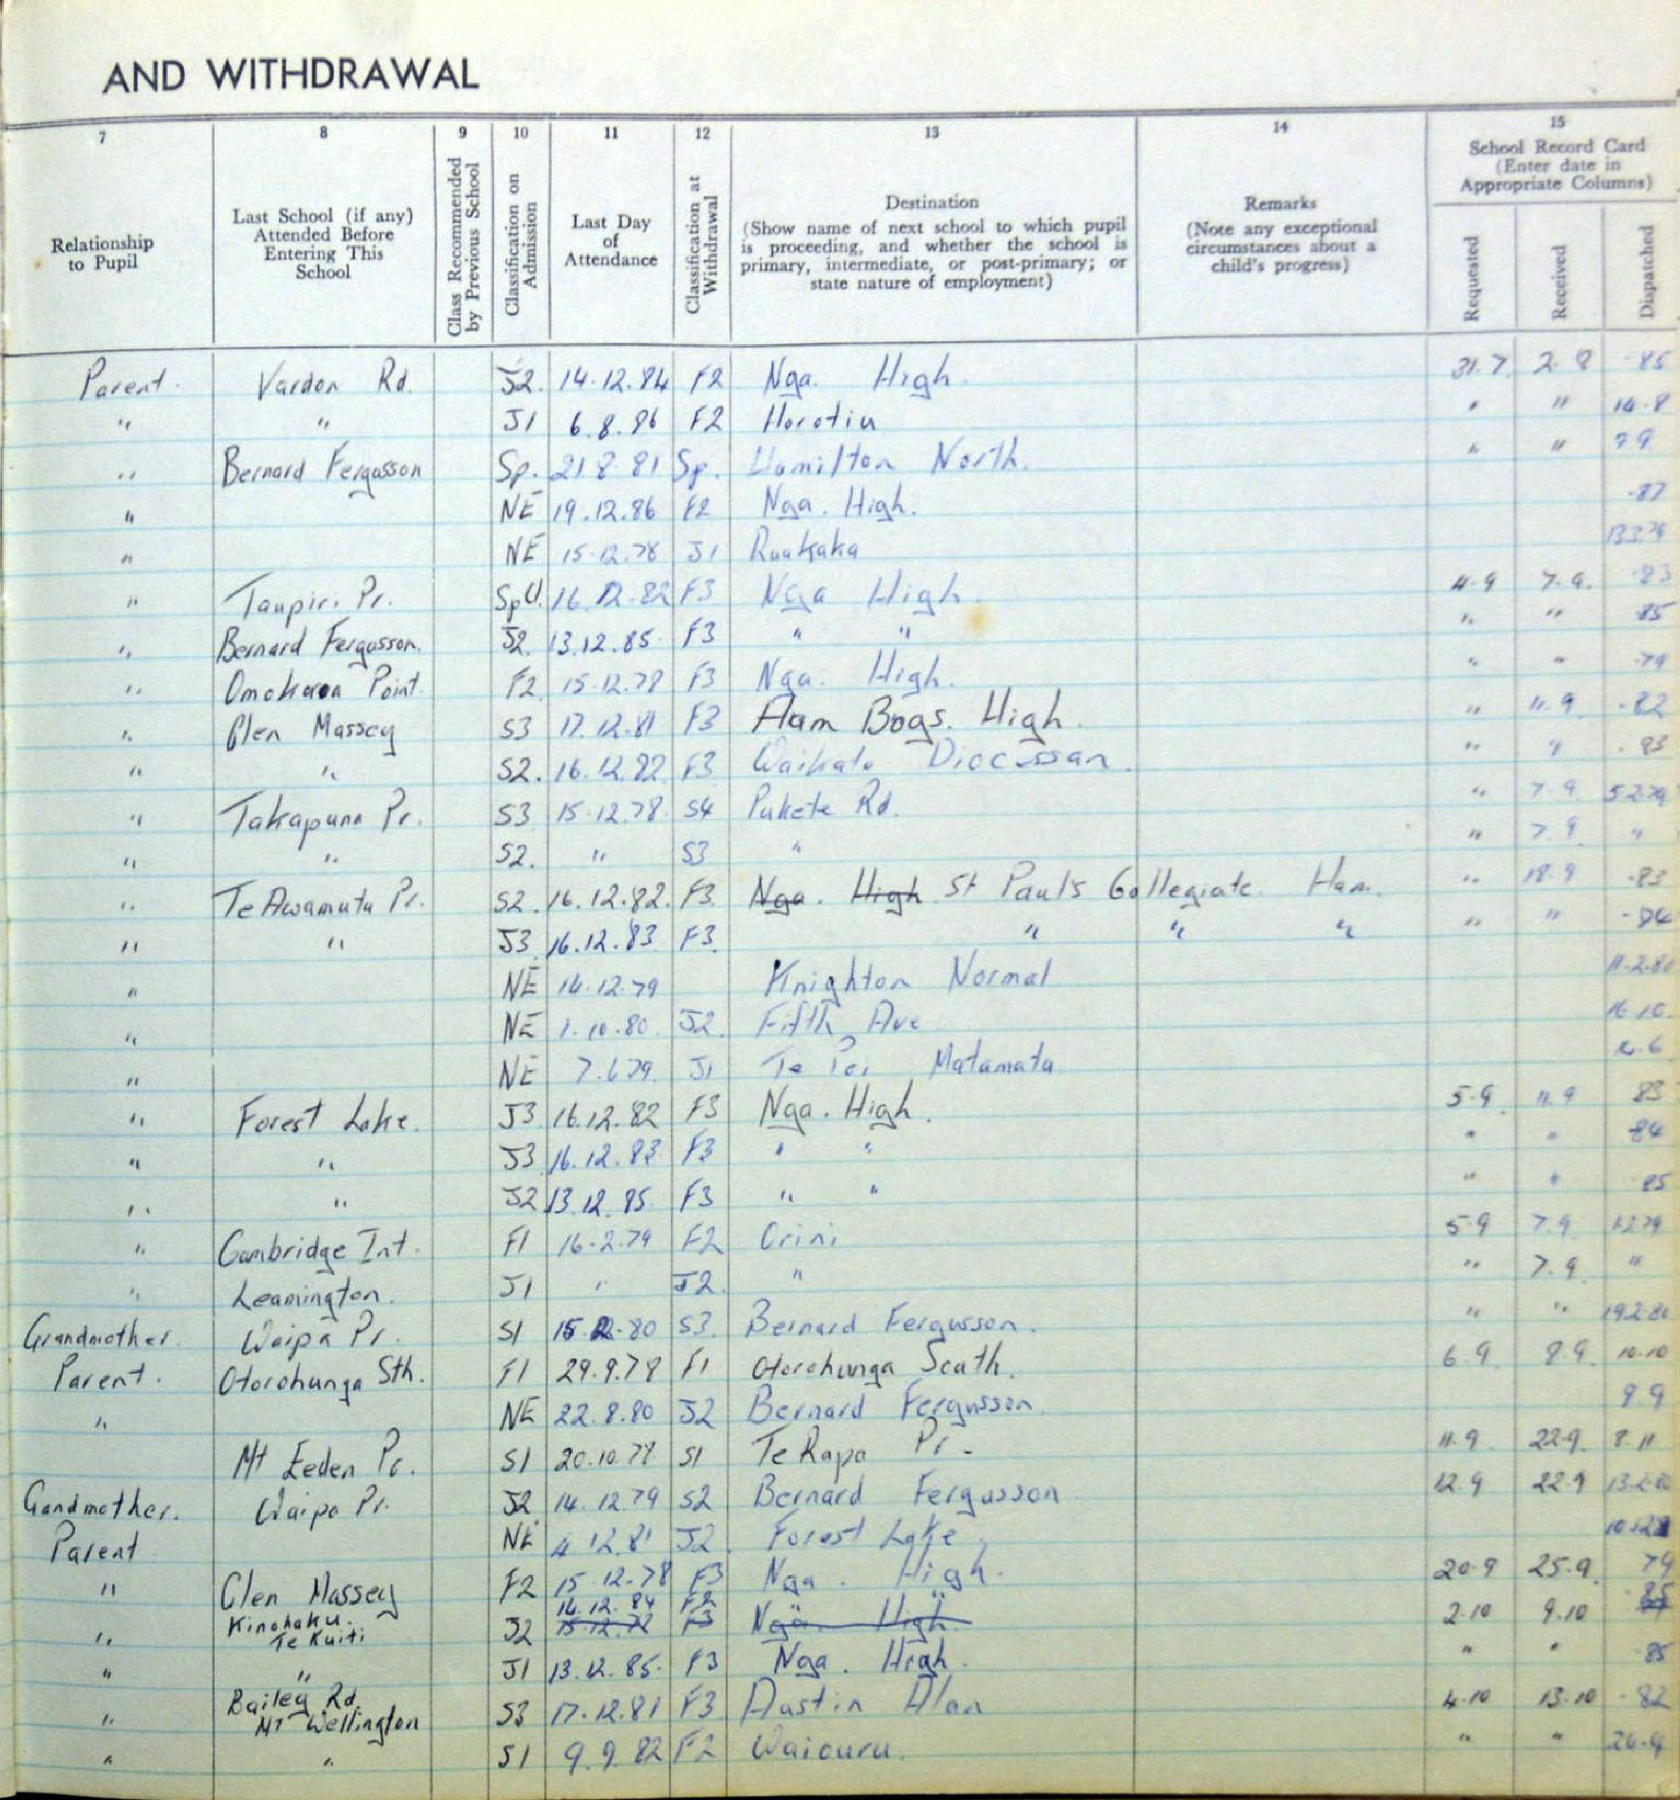 AND WITHDRAWAL
7 8 9 10 11 12 13 14 15
Relationship to Pupil
Last School (if any) Attended Before Entering This School
Class Recommended by Previous School
Classification on Admission
Last Day of Attendance
Classification at Withdrawal
Destination
(Show name of next school to which pupil is proceeding, and whether the school is primary, intermediate, or post-primary; or state nature of employment)
Remarks
(Note any exceptional circumstances about a child's progress)
School Record Card
(Enter date in Appropriate Columns)
Requested Received Dispatched
Parent. Vardon Rd. J2. 14.12.84 F2 Nga. High. 31.7 2.8 -85
" " J1 6.8.86 F2 Horotiu " " 14.8
" Bernard Fergusson Sp. 21.8.81 Sp. Hamilton North. " " 7.9
" NE 19.12.86 F2 Nga. High. -87
" NE 15.12.78 J1 Ruakaka 13.2.79
" Taupiri Pr. Sp 16.12.82 F3 Nga High. 4.9 7.9. -83
" Bernard Fergusson. J2. 13.12.85. F3 " " " " -85
" Omokoroa Point. F2. 15.12.78 F3 Nga. High. " " -79
" Glen Massey S3 17.12.81 F3 Ham Boys. High. " 11.9 -82
" " S2. 16.12.82 F3 Waikato Diocesan. " " -83
" Takapuna Pr. S3 15.12.78 S4 Pukete Rd. " 7.9 5.2.79
" " S2. " S3 " " 7.9 "
" Te Awamutu Pr. S2. 16.12.82. F3. Nga. High St Paul's Collegiate. Ham. " 18.9 -83
" " J3. 16.12.83 F3. " " " " " -84
" NE 14.12.79 Knighton Normal 11.2.80
" NE 1.10.80. J2. Fifth Ave 16.10.
" NE 7.6.79. J1 Te Poi Matamata
" Forest Lake. J3 16.12.82 F3 Nga. High. 5.9 11.9 83
" " J3 16.12.83 F3 " " " " 84
" " J2 13.12.85. F3 " " " " 85
" Cambridge Int. F1 16.2.79 F2 Orini 5.9 7.9
" Leamington. J1 " J2. " " 7.9 "
Grandmother. Waipa Pr. S1 S3. Bernard Fergusson. " " 19.2.80
Parent. Otorohunga Sth. F1 29.9.78 F1 Otorohunga South. 6.9. 8.9. 10.10
" NE 22.8.80 J2 Bernard Fergusson. 9.9
Mt Eeden Pr. S1 20.10.78 S1 Te Rapa Pr. 11.9 22.9. 8.11
Gandmother. Waipa Pr. J2 14.12.79 S2 Bernard Fergusson 12.9 22.9
Parent NE 4.12.81 J2. Forest Lake.
" Glen Massey F2 15.12.78 F3 Nga. High. 20.9 25.9. 79
14.12.84 F2 " " -85
" Kinohaku. Te Kuiti J2 15.12.78 F3 Nga. High. 2.10 9.10
" " J1 13.12.85. F3 Nga. High. " " -85
" Bailey Rd. Mt Wellington S3 17.12.81 F3 Dastin Alan 4.10 13.10 -82
" " S1 9.9.82 F2 Waiouru. " "